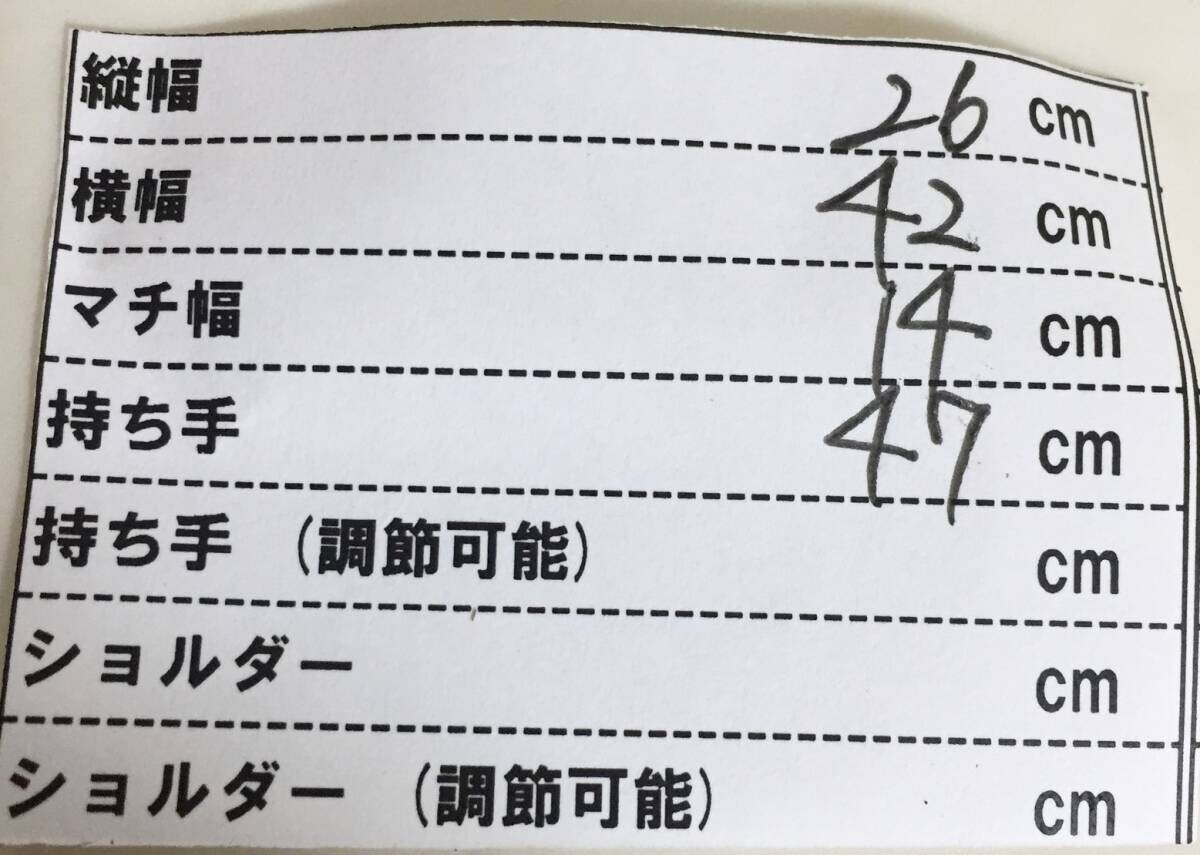 縦幅 26 cm
横幅 42 cm
マチ幅 14 cm
持ち手 47 cm
持ち手 (調節可能) cm
ショルダー cm
ショルダー (調節可能) cm